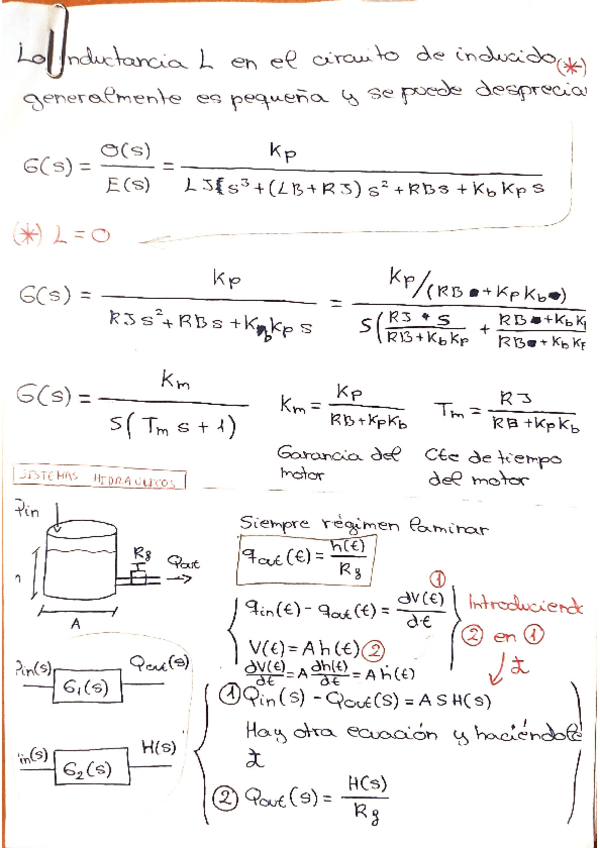 La inductancia L en el circuito de inducido (*)
generalmente es pequeña y se puede desprecia
G(s) = Θ(s)/E(s) = Kp / (LJs³+(LB+RJ)s²+RBs+KbKps)
(*) L=0
G(s) = Kp / (RJs²+RBs+KbKps) = Kp/(RB+KpKb) / S(RJ s/(RB+KbKp) + (RB+KbK)/(RB+KbKp
G(s) = Km / S(Tm s+1) Km = Kp/(RB+KpKb) Tm = RJ/(RB+KpKb)
Garancia del motor
Cte de tiempo del motor
SISTEMAS HIDRÁULICOS
Pin
Rg
Qout
A
Siempre régimen laminar
qout(t) = h(t)/Rg
qin(t) - qout(t) = dV(t)/dt ①
V(t) = Ah(t) ②
dV(t)/dt = A dh(t)/dt = Aḣ(t)
Introduciend
② en ①
ℒ
in(s) G₁(s) Qout(s)
in(s) G₂(s) H(s)
① Qin(s) - Qout(s) = ASH(s)
Hay otra ecuación y haciéndole
ℒ
② Qout(s) = H(s)/Rg